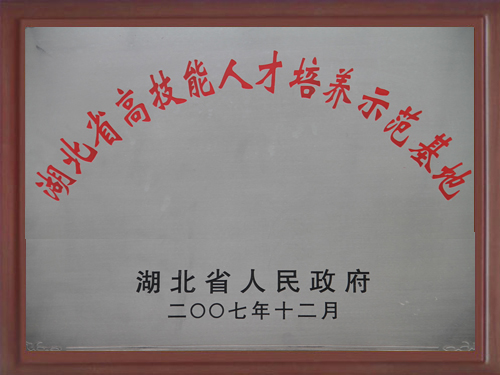 湖北省高技能人才培养示范基地
湖北省人民政府
二〇〇七年十二月